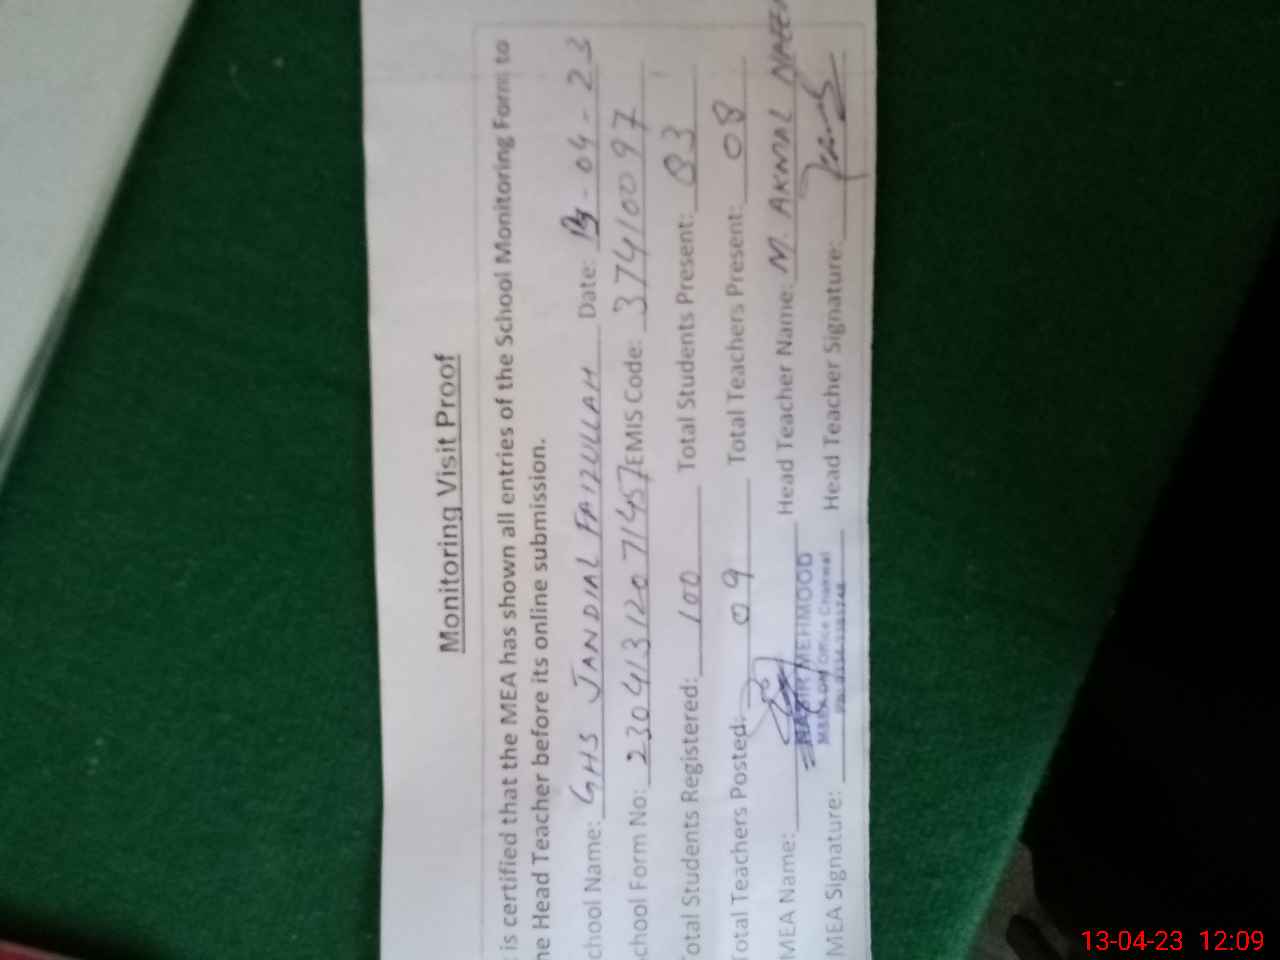 Monitoring Visit Proof
is certified that the MEA has shown all entries of the School Monitoring Form to
he Head Teacher before its online submission.
chool Name: GHS JANDIAL FAIZULLAH Date: 13-04-23
chool Form No: 23041312071457 EMIS Code: 37410097
otal Students Registered: 100 Total Students Present: 83
otal Teachers Posted: 09 Total Teachers Present: 08
MEA Name: NAZIR MEHMOOD Head Teacher Name: M. AKMAL
MEA Signature: Head Teacher Signature:
13-04-23 12:09